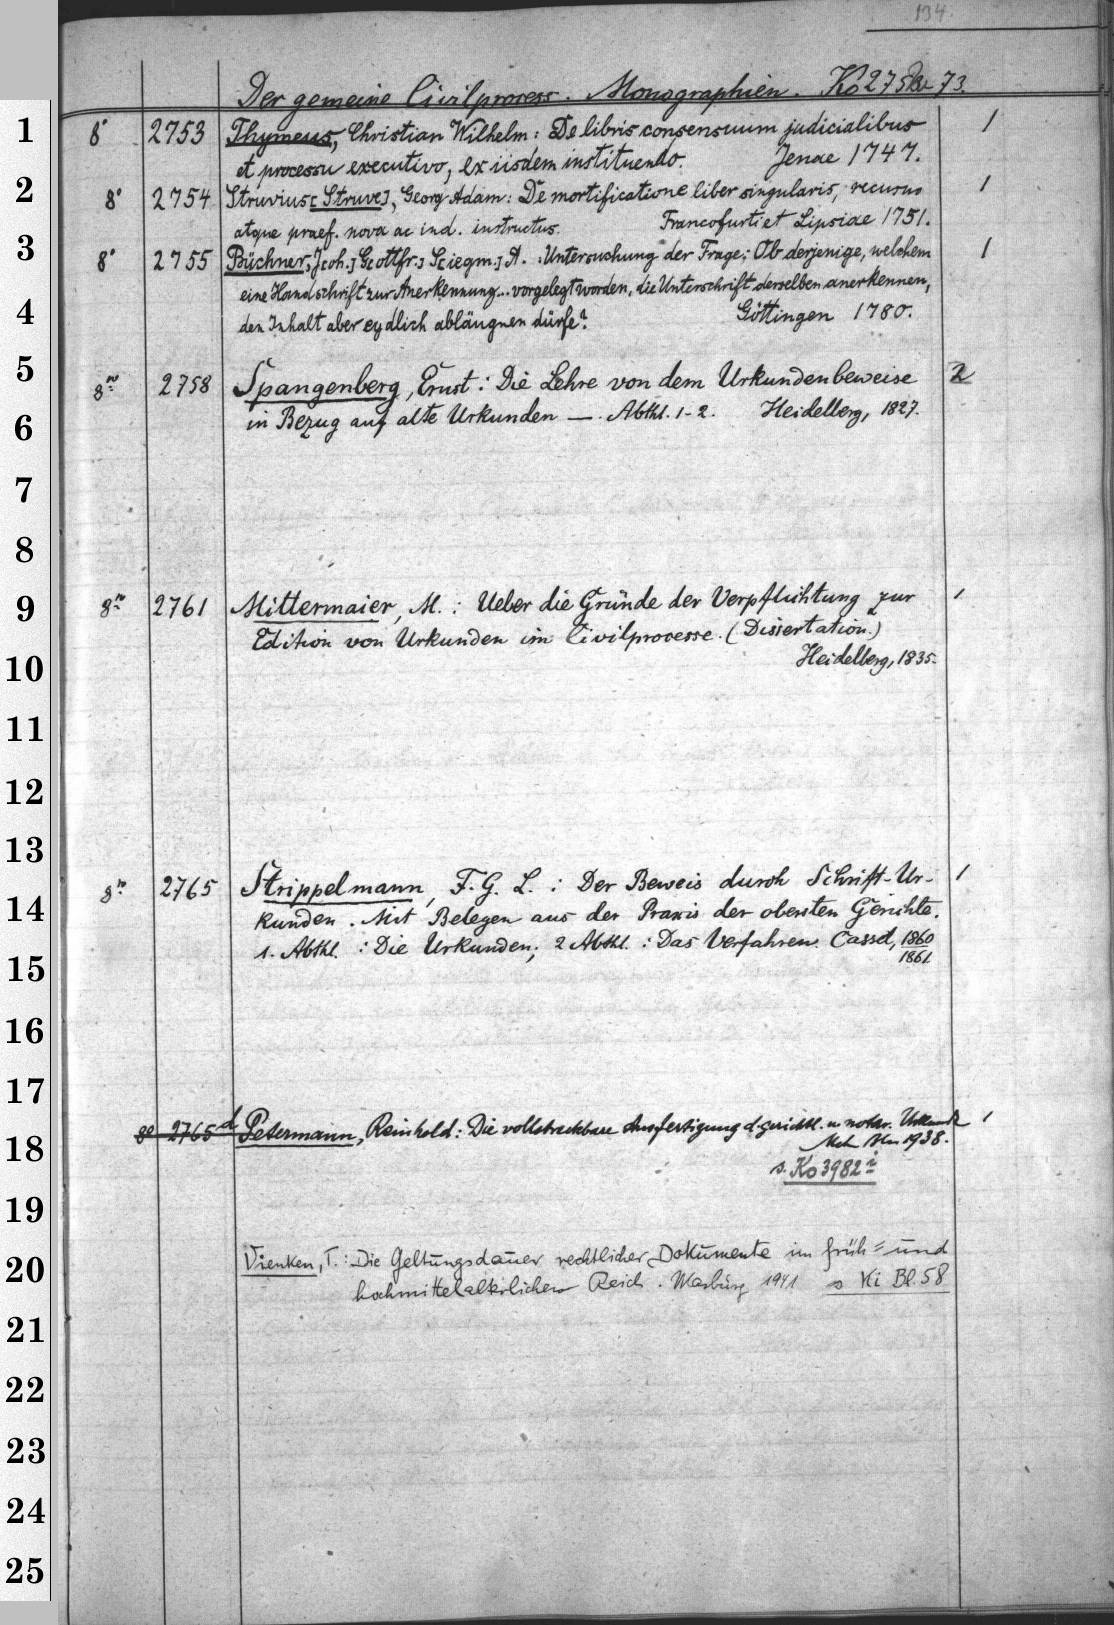 134.
Der gemeine Civilprocess. Monographien. Ko 275 73.
1 8° 2753 Thymeus, Christian Wilhelm: De libris consensuum judicialibus 1
et processu executivo, ex iisdem instituendo. Jenae 1747.
2 8° 2754 Struvius [Struve], Georg Adam: De mortificatione liber singularis, recusus 1
atque praef. nova ac ind. instructus. Francofurti et Lipsiae 1751.
3 8° 2755 Büchner, J[oh.] G[ottfr.] S[iegm.] A. Untersuchung der Frage: Ob derjenige, welchem 1
eine Handschrift zur Anerkennung... vorgelegt worden, die Unterschrift derselben anerkennen,
4 den Inhalt aber eydlich abläugnen dürfe? Göttingen 1780.
5 8° 2758 Spangenberg, Ernst: Die Lehre von dem Urkundenbeweise 2
6 in Bezug auf alte Urkunden —. Abthl. 1-2. Heidelberg, 1827.
7
8
9 8° 2761 Mittermaier, M.: Ueber die Gründe der Verpflichtung zur 1
Edition von Urkunden im Civilprocesse. (Dissertation.)
10 Heidelberg, 1835.
11
12
13
8° 2765 Strippelmann, F. G. L.: Der Beweis durch Schrift-Ur- 1
14 kunden. Mit Belegen aus der Praxis der obersten Gerichte.
15 1. Abthl.: Die Urkunden; 2 Abthl.: Das Verfahren. Cassel, 1860
1861.
16
17
8° 2765d Petermann, Reinhold: Die vollstreckbare Ausfertigung d. gerichtl. u. notar. 1
18 1938.
s. Ko 3982 i
19
20 Vienken, T.: Die Geltungsdauer rechtlicher Dokumente im früh= und
hochmittelalterlichen Reich. Marburg 1941 s Ki Bl. 58
21
22
23
24
25